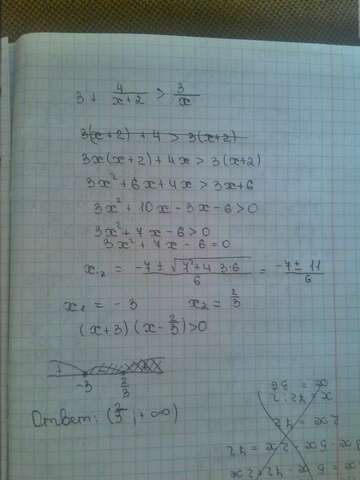 3 + 4/(x+2) > 3/x
3(x+2) + 4 > 3(x+2)
3x(x+2) + 4x > 3(x+2)
3x² + 6x + 4x > 3x + 6
3x² + 10x - 3x - 6 > 0
3x² + 7x - 6 > 0
3x² + 7x - 6 = 0
x₁₂ = (-7 ± √(7² + 4·3·6))/6 = (-7 ± 11)/6
x₁ = -3 x₂ = 2/3
(x+3)(x - 2/3) > 0
-3 2/3
Ответ: (2/3; +∞)